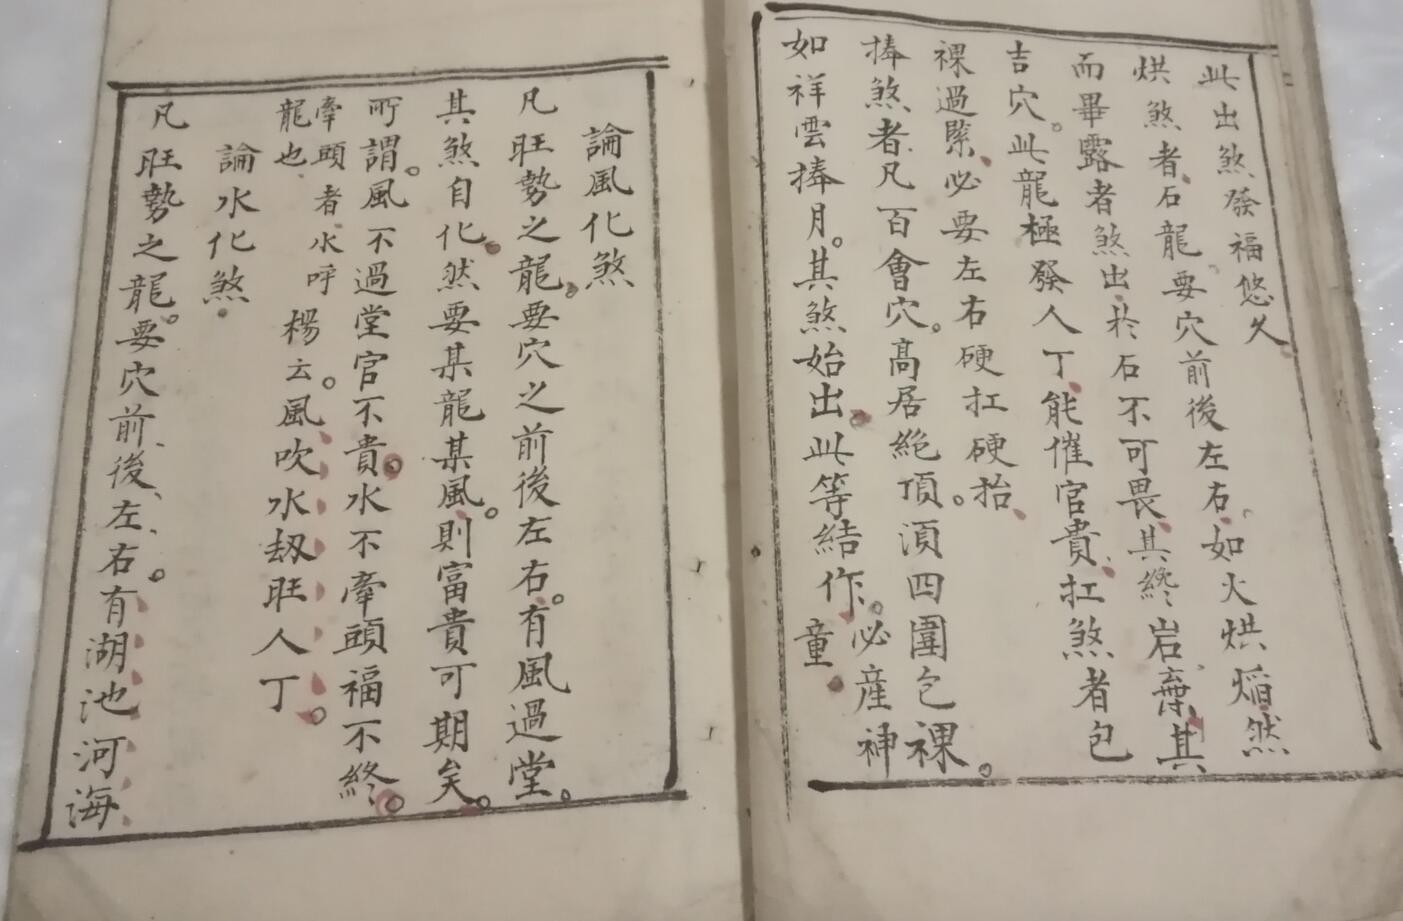 此出煞發福悠久
烘煞者石龍要穴前後左右如火烘焰然
而畢露者煞出於石不可畏其終岩棄其
吉穴。此龍極發人丁能催官貴扛煞者包
裸過緊必要左右硬扛硬抬
捧煞者凡百會穴。高居絶頂。湏四圍包裸。
如祥雲捧月。其煞始出此等結作。必産神
童
論風化煞
凡旺勢之龍。要穴之前後左右。有風過堂。
其煞自化然要某龍某風。則富貴可期矣。
所謂。風不過堂官不貴。水不牽頭福不終。
牽頭者水呼
龍也
楊云。風吹水刼旺人丁。
論水化煞
凡旺勢之龍。要穴前、後、左、右。有湖池河海